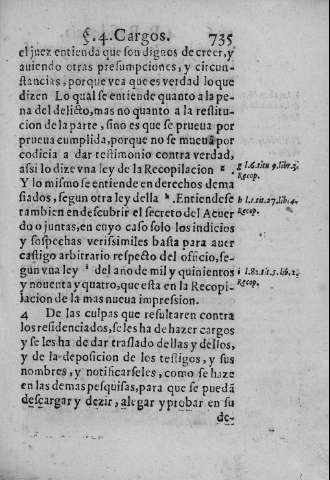 §. 4. Cargos. 735
el juez entienda que son dignos de creer, y
auiendo otras presumpciones, y circun-
stancias, porque vea que es verdad lo que
dizen Lo qual se entiende quanto a la pe-
na del delicto, mas no quanto a la restitu-
cion de la parte, sino es que se prueua por
prueua cumplida, porque no se mueuã por
codicia a dar testimonio contra verdad,
assi lo dize vna ley de la Recopilacion g.
g l.6. titu 9. libr.3.
Recop.
Y lo mismo se entiende en derechos dema
siados, segun otra ley della h. Entiendese
h l.1. tit. 27. lib. 4.
Recop.
tambien en descubrir el secreto del Acuer
do o juntas, en cuyo caso solo los indicios
y sospechas verissimiles basta para auer
castigo arbitrario respecto del officio, se-
gun vna ley i del año de mil y quinientos
i l. 82. tit. 5. lib. 2.
Recop.
y nouenta y quatro, que esta en la Recopi-
lacion de la mas nueua impression.
4 De las culpas que resultaren contra
los residenciados, se les ha de hazer cargos
y se les ha de dar traslado dellas y dellos,
y de la deposicion de los testigos, y sus
nombres, y notificarseles, como se haze
en las demas pesquisas, para que se puedã
descargar y dezir, alegar y prouar en su
de-